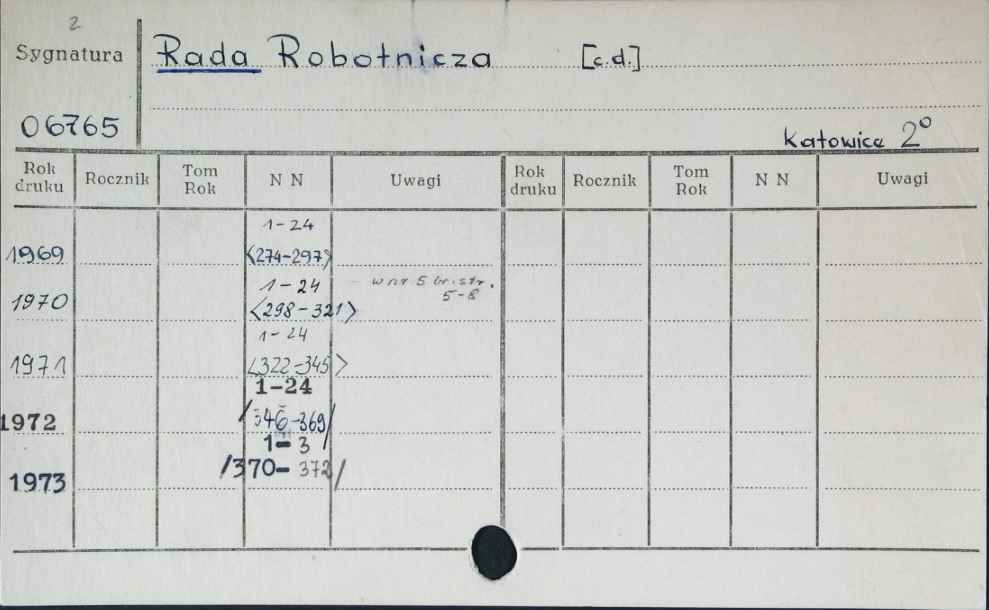 2
Sygnatura
Rada Robotnicza [c.d.]
06765
Katowice 2°
Rok druku Rocznik Tom Rok N N Uwagi Rok druku Rocznik Tom Rok N N Uwagi
1-24
1969 <274-297>
1-24 w nr 5 br. str. 5-8
1970 <298-321>
1-24
1971 <322-345>
1-24
1972 /346-369/
1-3
1973 /370-372/